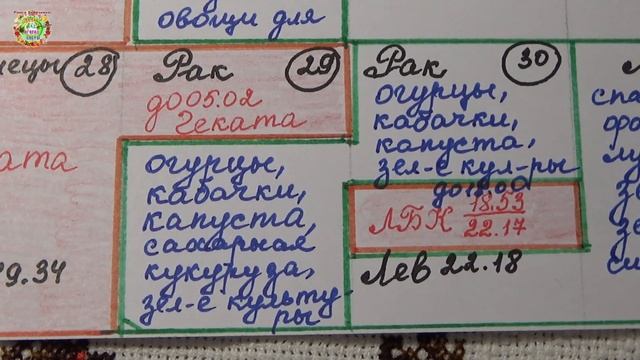 овощи для
нецы 28
ата
9.34
Рак 29
до 05.02
Геката
огурцы,
кабачки,
капуста,
сахарная
кукуруда,
зел-е культу
ры
Рак 30
огурцы,
кабачки,
капуста,
зел-е кул-ры
до 18.00
ЛБК 18.53
22.17
Лев 22.18
спа
ора
лу
з
зе
си